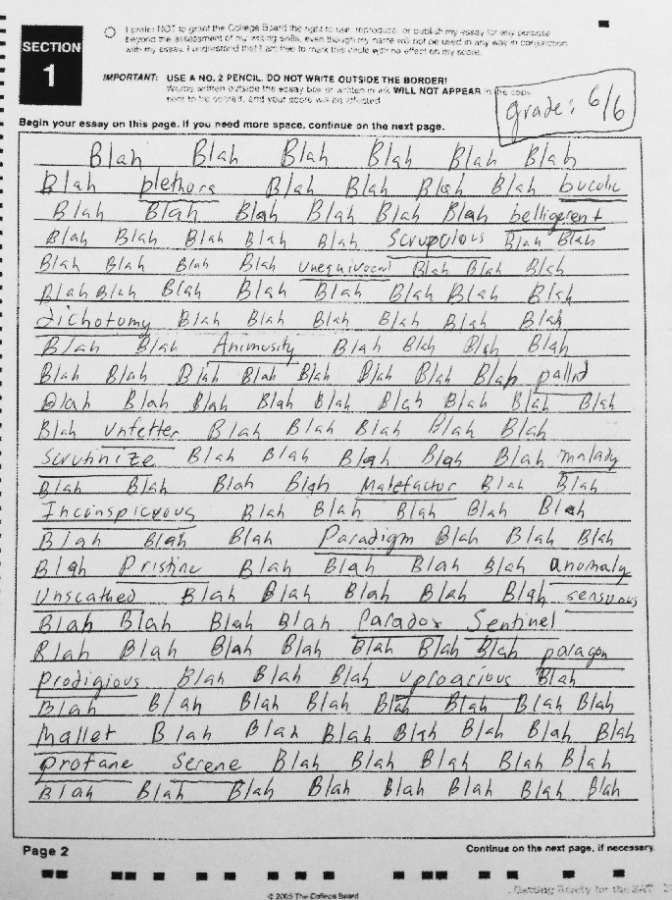 I prefer NOT to grant the College Board the right to use, reproduce, or publish my essay for any purpose
beyond the assessment of my writing skills, even though my name will not be used in any way in conjunction
with my essay. I understand that I am free to mark this circle with no effect on my score.
SECTION
1
IMPORTANT: USE A NO. 2 PENCIL. DO NOT WRITE OUTSIDE THE BORDER!
Words written outside the essay box or written in ink WILL NOT APPEAR in the copy
sent to be scored, and your score will be affected.
grade: 6/6
Begin your essay on this page. If you need more space, continue on the next page.
Blah Blah Blah Blah Blah Blah
Blah plethora Blah Blah Blah Blah bucolic
Blah Blah Blah Blah Blah Blah belligerent
Blah Blah Blah Blah Blah Scrupulous Blah Blah
Blah Blah Blah Blah Unequivocal Blah Blah Blah
Blah Blah Blah Blah Blah Blah Blah Blah
dichotomy Blah Blah Blah Blah Blah Blah
Blah Blah Animosity Blah Blah Blah Blah
Blah Blah Blah Blah Blah Blah Blah Blah pallid
Blah Blah Blah Blah Blah Blah Blah Blah Blah
Blah Unfetter Blah Blah Blah Blah Blah
Scrutinize Blah Blah Blah Blah Blah malady
Blah Blah Blah Blah Malefactor Blah Blah
Inconspicuous Blah Blah Blah Blah Blah
Blah Blah Blah Paradigm Blah Blah Blah
Blah Pristine Blah Blah Blah Blah anomaly
Unscathed Blah Blah Blah Blah Blah sensuous
Blah Blah Blah Blah Paradox Sentinel
Blah Blah Blah Blah Blah Blah Blah paragon
Prodigious Blah Blah Blah uproarious Blah
Blah Blah Blah Blah Blah Blah Blah Blah
Mallet Blah Blah Blah Blah Blah Blah Blah
Profane Serene Blah Blah Blah Blah Blah
Blah Blah Blah Blah Blah Blah Blah Blah
Page 2
Continue on the next page, if necessary.
© 2005 The College Board
Getting Ready for the SAT